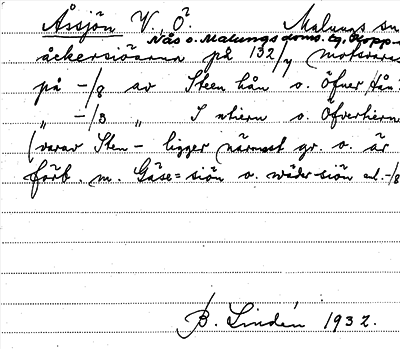 Åssjön V, Ö. Malungs sn
Nås o. Malungs doms. Eg. Kopp-
åckersiöarna på 132/7 motsvaras
på -/8 av Steen hån o. Öfner hån
„ -/3 „ S ntiern o. Öfvertiern
(varav Sten- ligger närmast gr. o. är
förb. m. Gåse=siön o. wåder-siön enl. -/8
B. Lindén 1932.